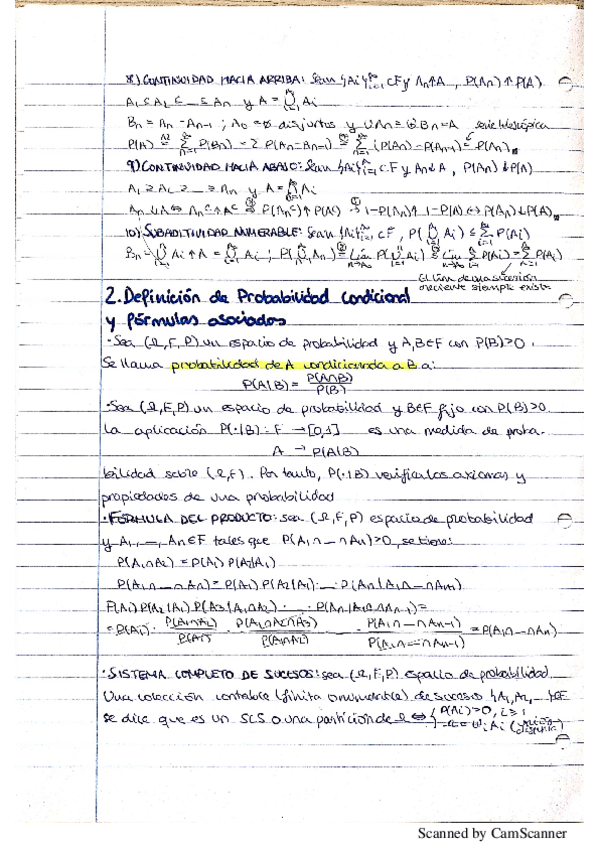 8) CONTINUIDAD HACIA ARRIBA: Sean {Ai}∞i=1 ⊂ F y An↑A, P(An)↑P(A)
A1 ⊆ A2 ⊆ ... ⊆ An y A = ∞∪i=1 Ai
Bn = An - An-1 ; A0 = ∅ disjuntos y ∪An = ⊎Bn = A serie telescópica
P(A) = ∞Σn=1 P(Bn) = Σ P(An-An-1) = ∞Σn=1 (P(An)-P(An-1)) = P(An)
9) CONTINUIDAD HACIA ABAJO: Sean {Ai}∞i=1 ⊂ F y An↓A, P(An)↓P(A)
A1 ⊇ A2 ⊇ ... ⊇ An y A = ∞∩i=1 Ai
An↓A ⇔ Anᶜ↑Aᶜ ⇒ P(Anᶜ)↑P(Aᶜ) ⇒ 1-P(An)↑1-P(A) ⇔ P(An)↓P(A)
10) SUBADITIVIDAD NUMERABLE: Sean {Ai}∞i=1 ⊂ F, P(∞∪i=1 Ai) ≤ ∞Σi=1 P(Ai)
Bn = n∪i=1 Ai ↑ A = ∞∪i=1 Ai ; P(∞∪i=1 An) = lim n→∞ P(n∪i=1 Ai) ≤ lim n→∞ nΣi=1 P(Ai) = ∞Σi=1 P(Ai)
El lím de una sucesión
creciente siempre existe
2. Definición de Probabilidad Condicional
y fórmulas asociadas
·Sea (Ω, F, P) un espacio de probabilidad y A, B∈F con P(B)>0.
Se llama probabilidad de A condicionada a B a:
P(A|B) = P(A∩B) / P(B)
·Sea (Ω, F, P) un espacio de probabilidad y B∈F fijo con P(B)>0.
La aplicación P(·|B): F → [0,1] es una medida de proba-
A → P(A|B)
bilidad sobre (Ω, F). Por tanto, P(·|B) verifica los axiomas y
propiedades de una probabilidad
·FÓRMULA DEL PRODUCTO: sea (Ω, F, P) espacio de probabilidad
y A1, ..., An∈F tales que P(A1∩...∩An)>0, se tiene:
P(A1∩A2) = P(A1) P(A2|A1)
P(A1∩...∩An) = P(A1) P(A2|A1) · ... · P(An|A1∩...∩An-1)
P(A1) P(A2|A1) P(A3|A1∩A2) · ... · P(An|A1∩...∩An-1) =
= P(A1) · P(A1∩A2)/P(A1) · P(A1∩A2∩A3)/P(A1∩A2) · ... · P(A1∩...∩An)/P(A1∩...∩An-1) = P(A1∩...∩An)
·SISTEMA COMPLETO DE SUCESOS: sea (Ω, F, P) espacio de probabilidad.
Una colección contable (finita o numerable) de sucesos {A1, A2, ...}∈F
se dice que es un SCS o una partición de Ω ⇔ { P(Ai)>0, i≥1
Ω = ⊎i Ai (unión disjunta)
Scanned by CamScanner